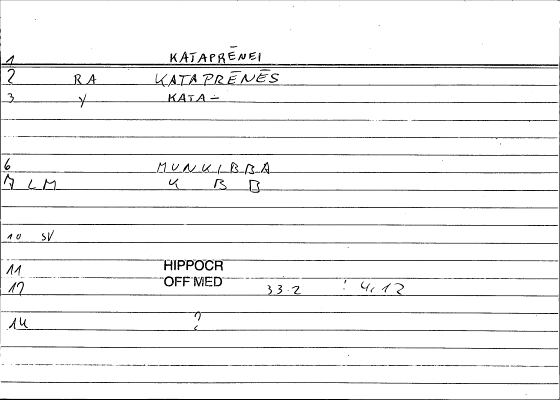 1 KATAPRĒNEI
2 RA KATAPRĒNĒS
3 Y KATA-
6 MUNKIBBA
7 LM K B B
10 SV
11 HIPPOCR
12 OFF MED 33.2 : 4,12
14 ?